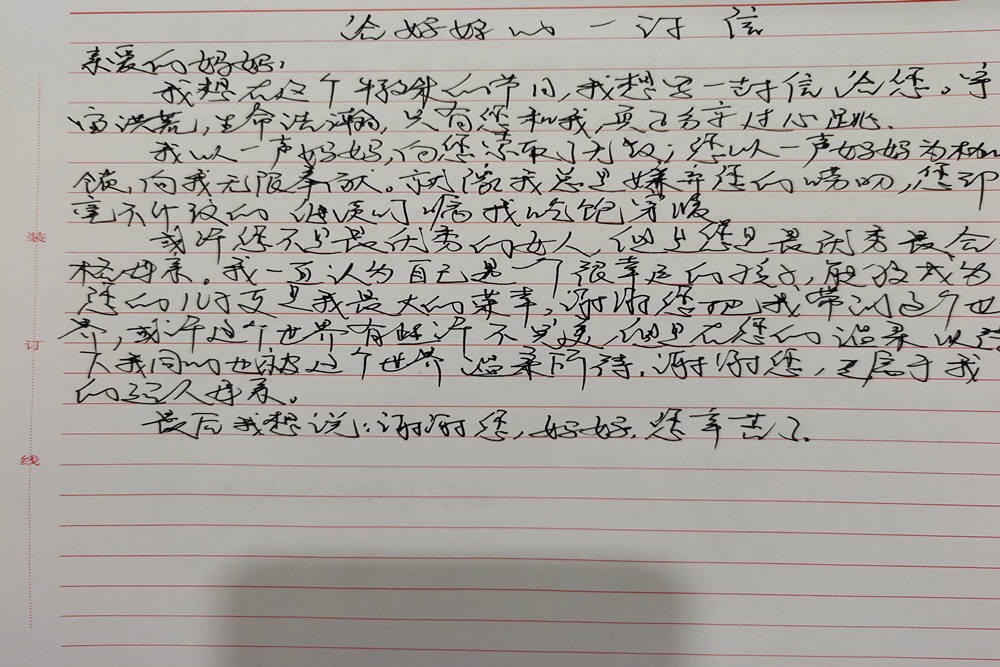 给妈妈的一封信
亲爱的妈妈:
我想在这个特殊的节日,我想写一封信给您。宇
宙洪荒,生命浩瀚,只有您和我,真正分享过心跳.
我以一声妈妈,向您索取了无数;您以一声妈妈为枷
锁,向我无限奉献。就像我总是嫌弃您的唠叨,您却
毫不介意的
我吃饱穿暖
或许您不是最优秀的女人,但是您是最优秀最合
格母亲。我一直认为自己是一个很幸运的孩子,能够成为
您的儿时更是我最大的荣幸,谢谢您把我带到这个世
界,或许这个世界有些许不完美,但是在您的温柔以待
下我同时也被这个世界温柔所待.谢谢您,至属于我
的超人母亲。
最后我想说:谢谢您,妈妈.您辛苦了.
装
订
线